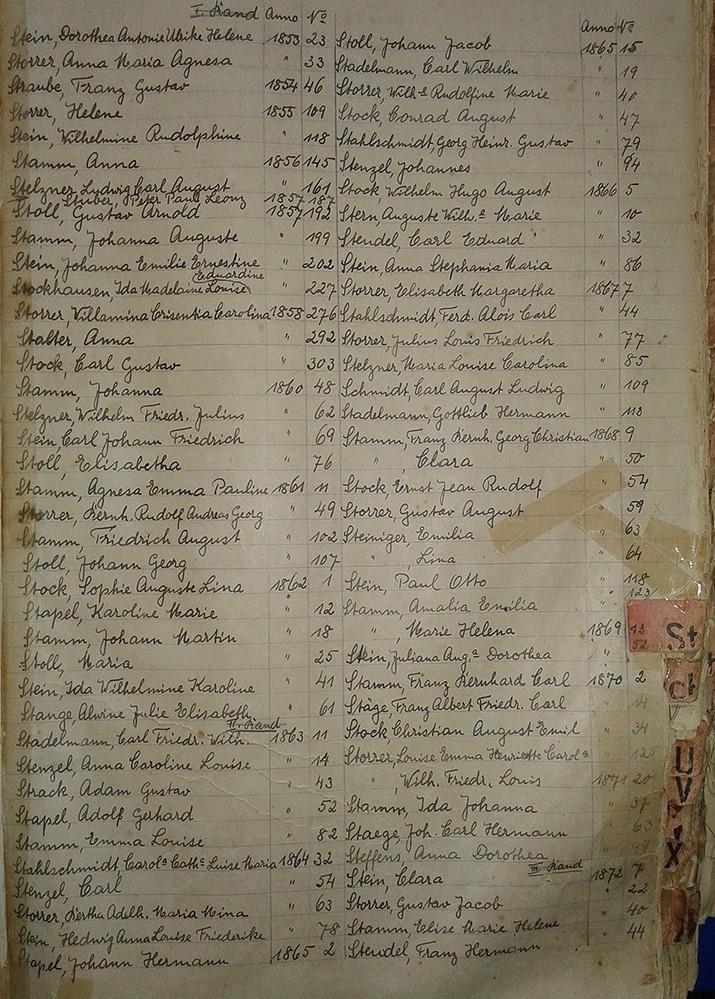 I. Band Anno No
Stein, Dorothea Antonie Ulrike Helene 1853 23
Storrer, Anna Maria Agnesa " 33
Straube, Franz Gustav 1854 46
Storrer, Helene 1855 109
Stein, Wilhelmine Rudolphine " 118
Stamm, Anna 1856 145
Stelzner, Ludwig Carl August " 161
Stuber, Peter Paul Leonz 1857 187
Stoll, Gustav Arnold 1857 192
Stamm, Johanna Auguste " 199
Stein, Johanna Emilie Ernestine " 202
Eduardine
Stockhausen, Ida Madelaine Louise " 227
Storrer, Villamina Crisentia Carolina 1858 276
Stalter, Anna " 292
Stock, Carl Gustav " 303
Stamm, Johanna 1860 48
Stelzner, Wilhelm Friedr. Julius " 62
Stein, Carl Johann Friedrich " 69
Stoll, Elisabetha " 76
Stamm, Agnesa Emma Pauline 1861 11
Storrer, Bernh. Rudolf Andreas Georg " 49
Stamm, Friedrich August " 102
Stoll, Johann Georg " 107
Stock, Sophie Auguste Lina 1862 1
Stapel, Karoline Marie " 12
Stamm, Johann Martin " 18
Stoll, Maria " 25
Stein, Ida Wilhelmine Karoline " 41
Stange, Alwine Julie Elisabeth " 61
II. Band
Stadelmann, Carl Friedr. Wilh. 1863 11
Stenzel, Anna Caroline Louise " 14
Strack, Adam Gustav " 43
Stapel, Adolf Gerhard " 52
Stamm, Emma Louise " 82
Stahlschmidt, Carola Cathc Luise Maria 1864 32
Stenzel, Carl " 54
Storrer, Bertha Adelh. Maria Mina " 63
Stein, Hedwig Anna Louise Friederike " 78
Stapel, Johann Hermann 1865 2
Anno No
Stoll, Johann Jacob 1865 15
Stadelmann, Carl Wilhelm " 19
Storrer, Wilhe Rudolfine Marie " 40
Stock, Conrad August " 47
Stahlschmidt, Georg Heinr. Gustav " 79
Stenzel, Johannes " 94
Stock, Wilhelm Hugo August 1866 5
Stern, Auguste Wilh.e Marie " 10
Stendel, Carl Eduard " 32
Stein, Anna Stephania Maria " 86
Storrer, Elisabeth Margaretha 1867 7
Stahlschmidt, Ferd. Alois Carl " 44
Storrer, Julius Louis Friedrich " 77
Stelzner, Maria Louise Carolina " 85
Schmidt, Carl August Ludwig " 109
Stadelmann, Gottlieb Hermann " 113
Stamm, Franz Bernh. Georg Christian 1868 9
" , Clara " 50
Stock, Ernst Jean Rudolf " 54
Storrer, Gustav August " 59
Steiniger, Emilia " 63
" Lina " 64
Stein, Paul Otto " 118
Stamm, Amalia Emilia " 123
" , Marie Helena 1869 13
Stein, Juliana Aug.a Dorothea " 52
Stamm, Franz Bernhard Carl 1870 2
Stäge, Franz Albert Friedr. Carl " 14
Stock, Christian August Emil " 34
Storrer, Louise Emma Henriette Carola " 125
" , Wilh. Friedr. Louis 1871 20
Stamm, Ida Johanna " 37
Staege, Joh. Carl Hermann " 63
Steffens, Anna Dorothea "
III Band
Stein, Clara 1872 7
Storrer, Gustav Jacob " 22
Stamm, Elise Marie Helene " 40
Stendel, Franz Hermann " 44
St
U
V
X